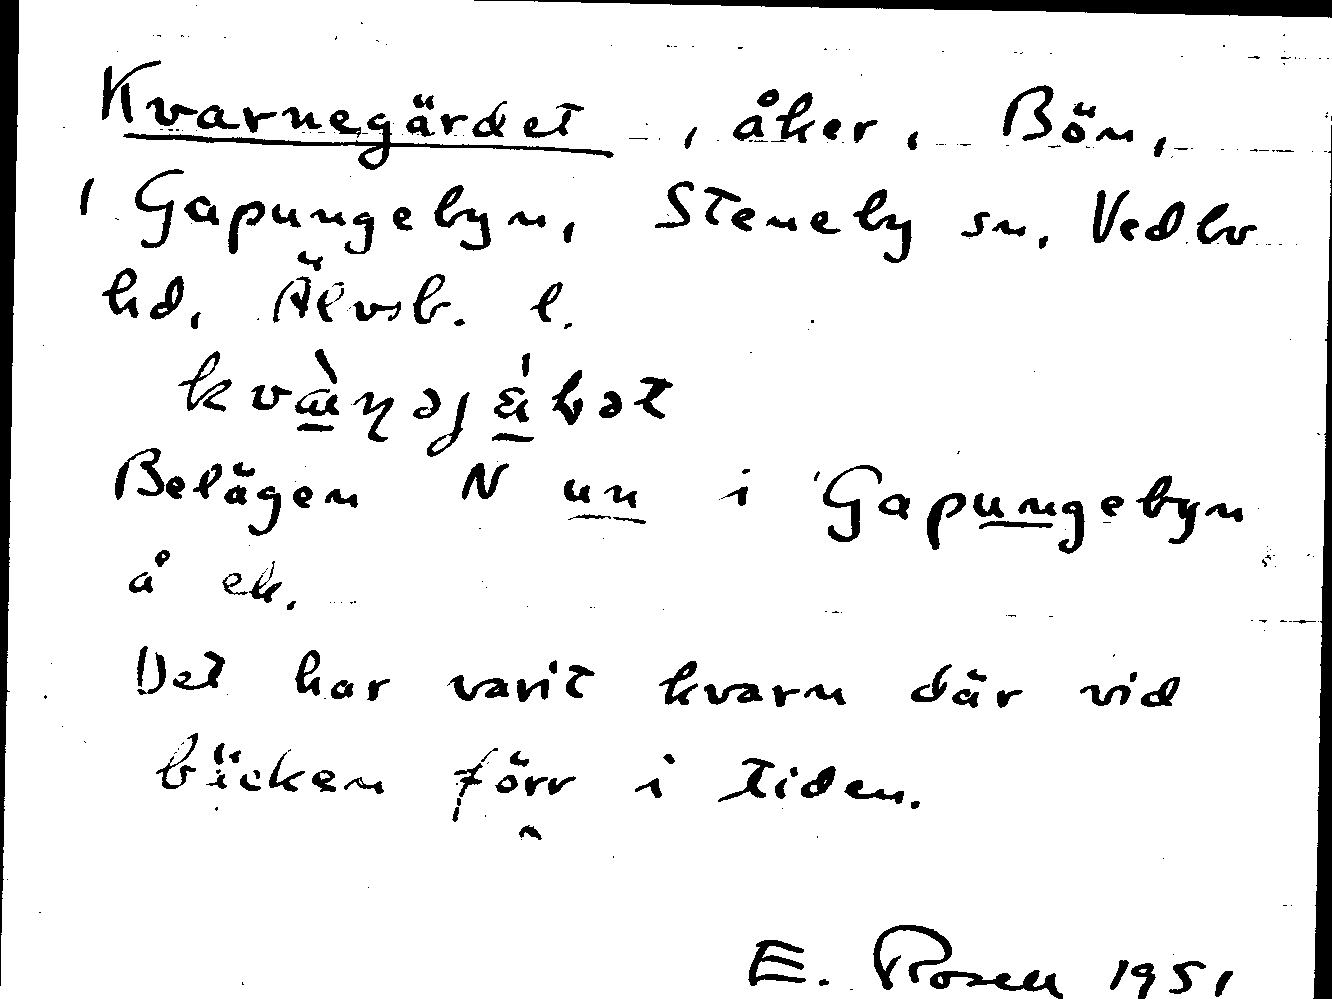 Kvarnegärdet, åker, Bön,
1 Gapungebyn, Steneby sn. Vedbo
hd, Älvsb. l.
Belägen N un i Gapungebyn
å ek.
Det har varit kvarn där vid
bäcken förr i tiden.
E. Rosell 1951